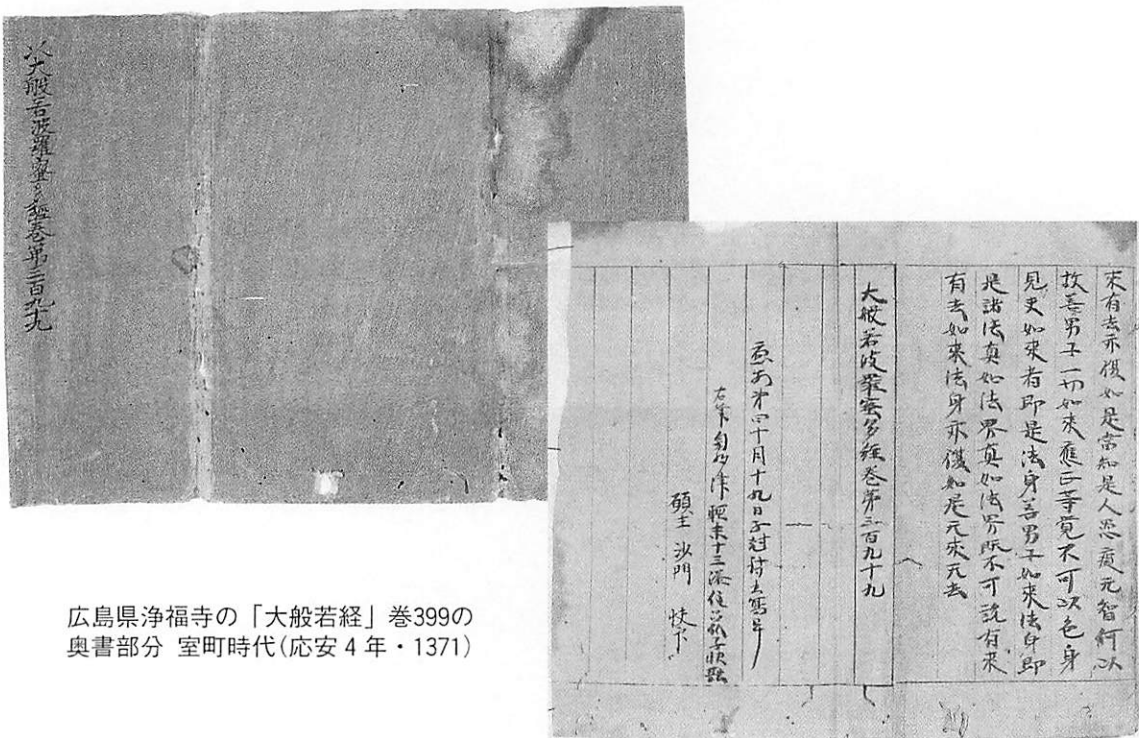 大般若波羅蜜多経巻第三百九十九
来有去亦復如是當知是人愚癡无智何以
故善男子一切如来應正等覚不可以色身
見夫如来者即是法身善男子如来法身即
是諸法真如法界真如法界既不可説有来
有去如来法身亦復如是无来无去
大般若波羅蜜多経巻第三百九十九
應安第四十月十九日
願主 沙門
広島県浄福寺の「大般若経」巻399の
奥書部分 室町時代(応安4年・1371)